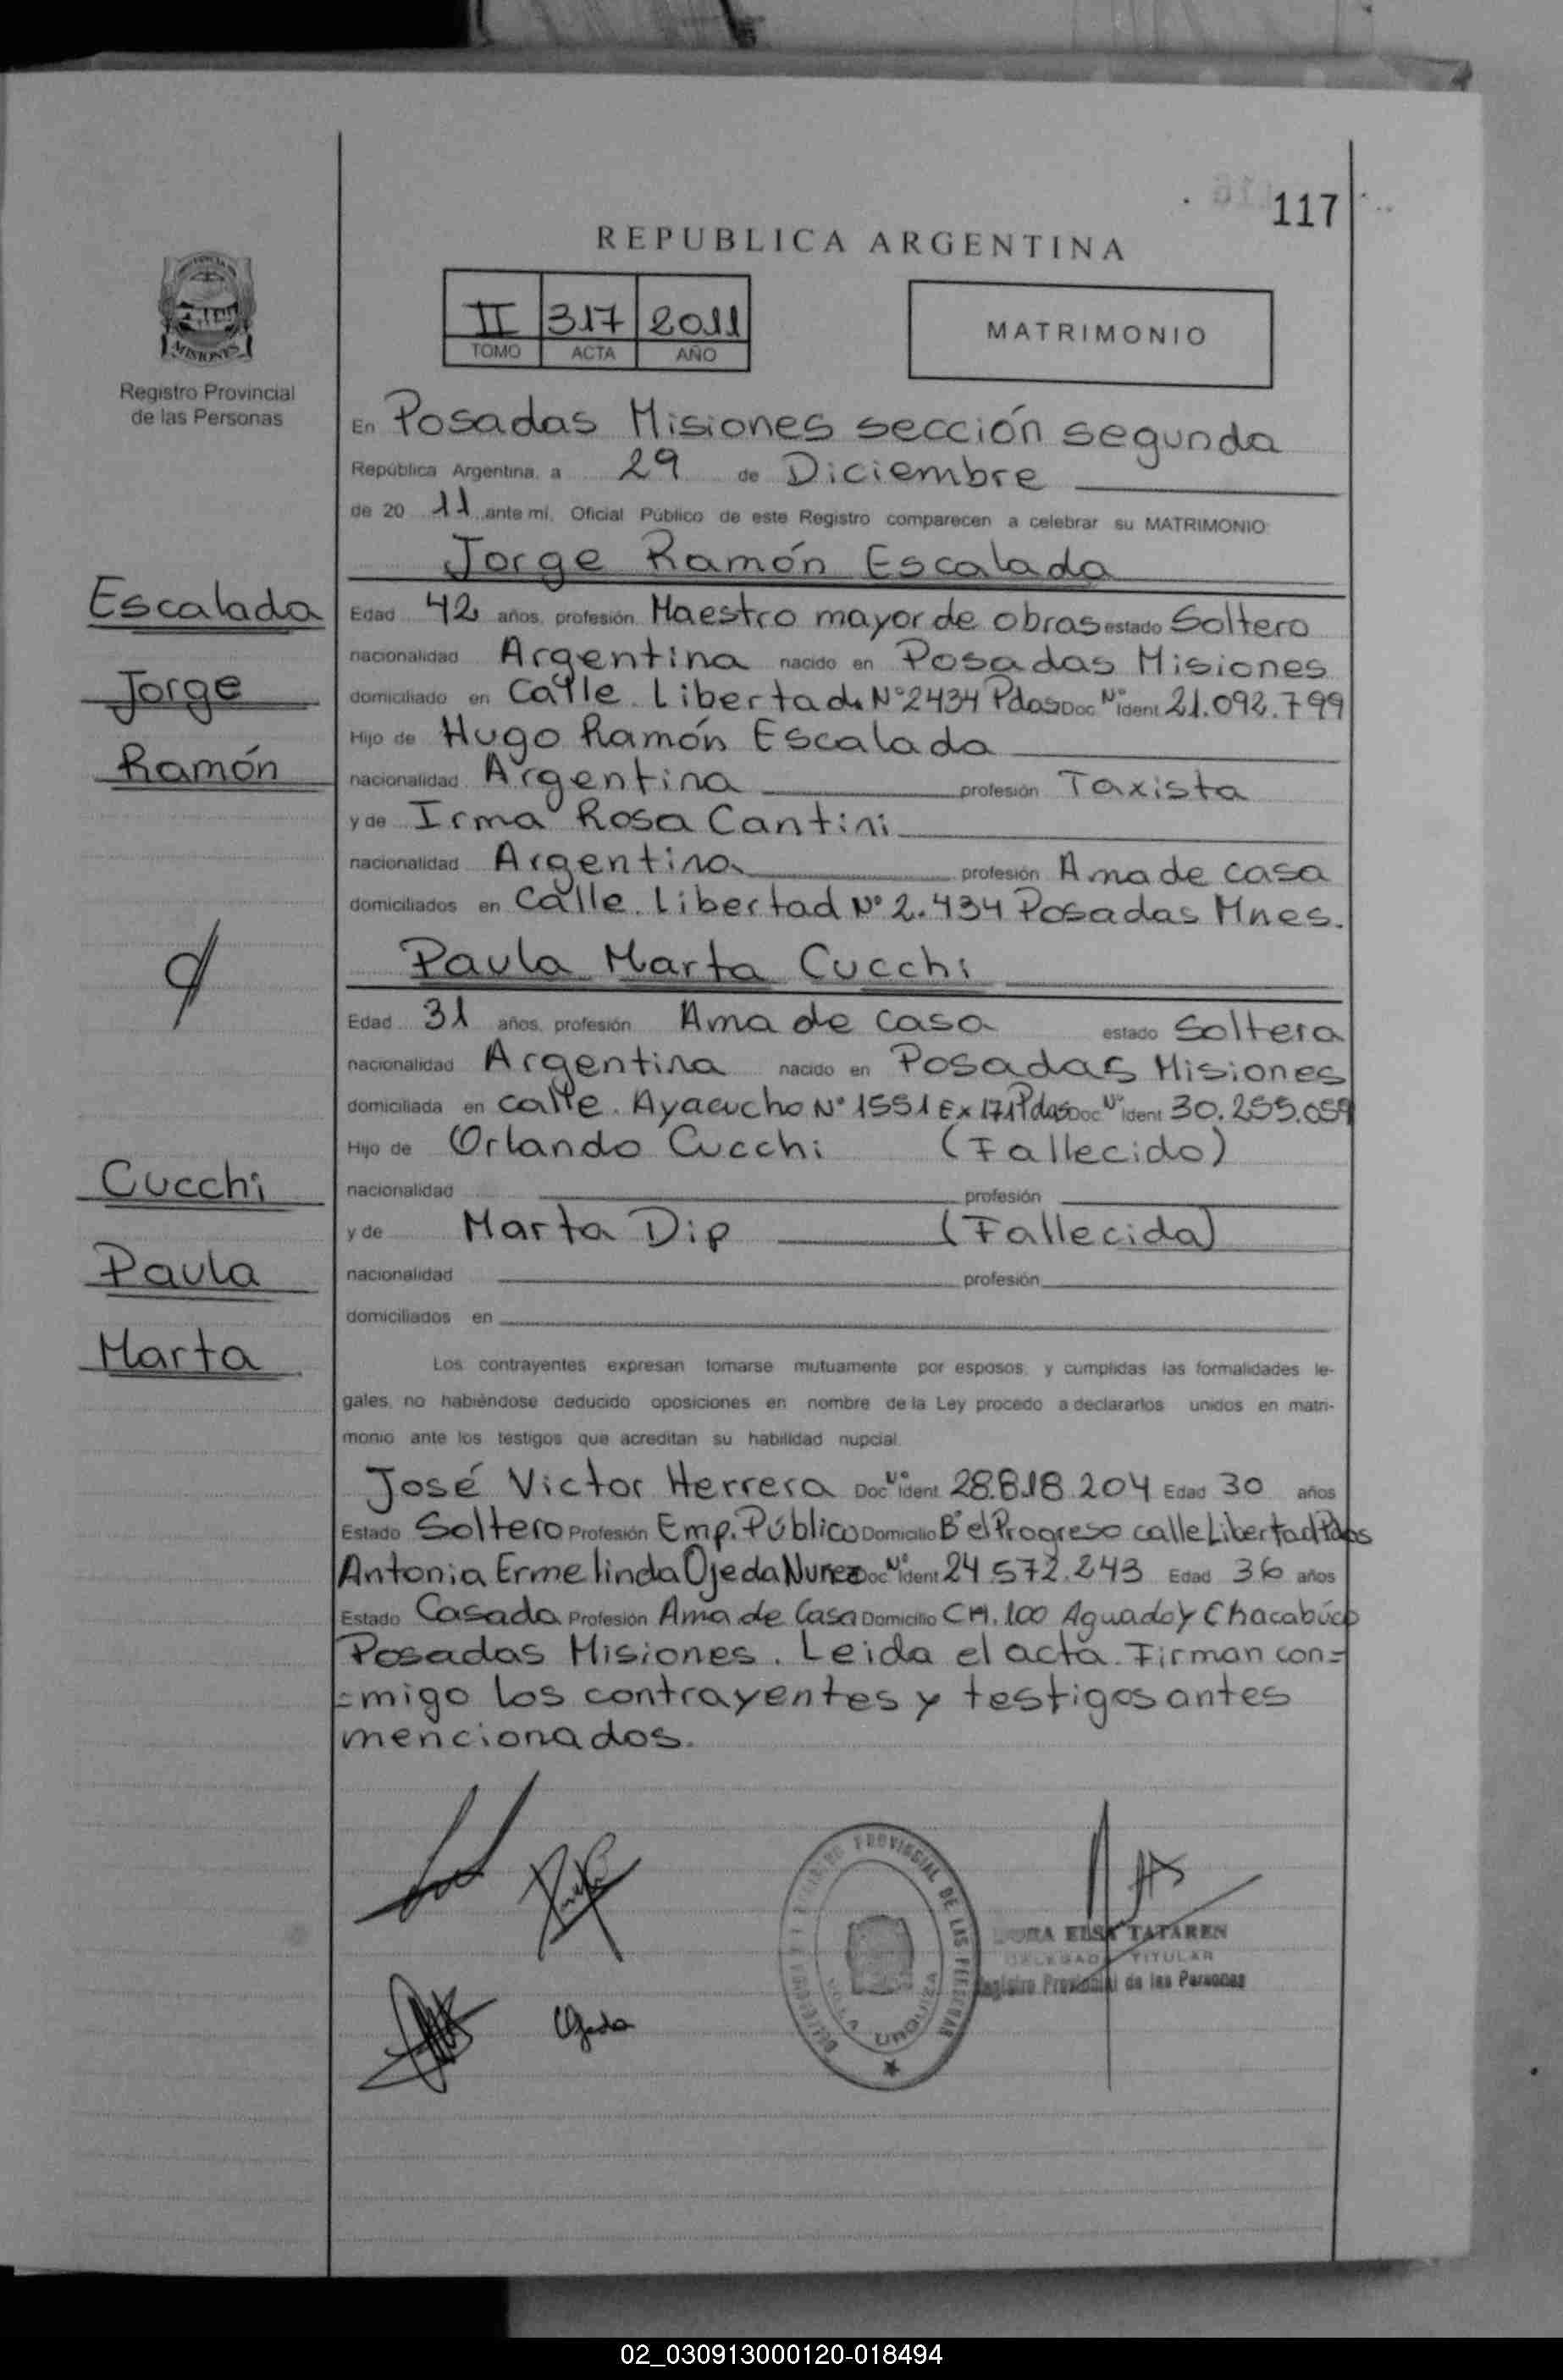 117
REPUBLICA ARGENTINA
II 317 2011
TOMO ACTA AÑO
MATRIMONIO
MISIONES
Registro Provincial
de las Personas
En Posadas Misiones sección segunda
República Argentina, a 29 de Diciembre
de 20 11 ante mí, Oficial Público de este Registro comparecen a celebrar su MATRIMONIO:
Jorge Ramón Escalada
Escalada
Jorge
Ramón
Edad 42 años, profesión Maestro mayor de obras estado Soltero
nacionalidad Argentina nacido en Posadas Misiones
domiciliado en Calle Libertad Nº 2434 Pdas Doc Nº ident 21.092.799
Hijo de Hugo Ramón Escalada
nacionalidad Argentina profesión Taxista
y de Irma Rosa Cantini
nacionalidad Argentina profesión Ama de casa
domiciliados en Calle Libertad Nº 2.434 Posadas Mnes.
Paula Marta Cucchi
Edad 31 años, profesión Ama de casa estado Soltera
nacionalidad Argentina nacido en Posadas Misiones
domiciliada en calle Ayacucho Nº 1551 Ex 171 Pdas Doc Nº ident 30.255.059
Hijo de Orlando Cucchi (Fallecido)
nacionalidad profesión
y de Marta Dip (Fallecida)
nacionalidad profesión
domiciliados en
Cucchi
Paula
Marta
Los contrayentes expresan tomarse mutuamente por esposos, y cumplidas las formalidades le-
gales, no habiéndose deducido oposiciones en nombre de la Ley procedo a declararlos unidos en matri-
monio ante los testigos que acreditan su habilidad nupcial.
José Victor Herrera Doc Nº ident. 28.818.204 Edad 30 años
Estado Soltero Profesión Emp. Público Domicilio Bº el Progreso calle Libertad Pdas
Antonia Ermelinda Ojeda Nunez Doc Nº ident 24.572.243 Edad 36 años
Estado Casada Profesión Ama de Casa Domicilio CH. 100 Aguado y Chacabuco
Posadas Misiones. Leida el acta. Firman con=
=migo los contrayentes y testigos antes
mencionados.
Ojeda
PROVINCIAL DE LAS PERSONAS
VILLA URQUIZA
ELSA TATAREN
DELEGADA TITULAR
Registro Provincial de las Personas
02_030913000120-018494